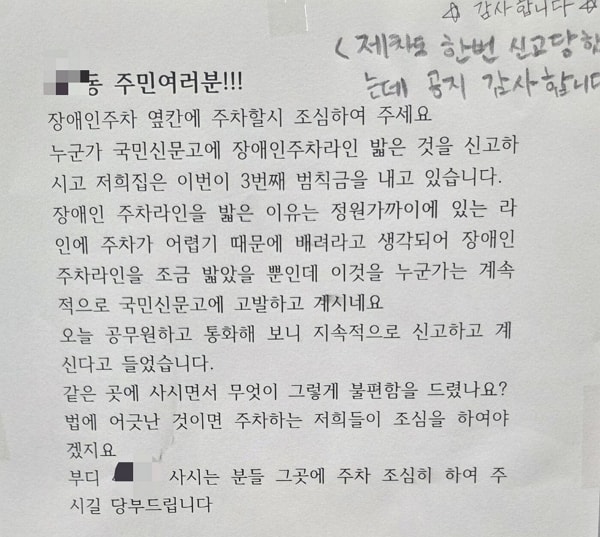 ☆ 감사합니다 ☆
< 제차도 한번 신고당하
는데 공지 감사합니다
동 주민여러분!!!
장애인주차 옆칸에 주차할시 조심하여 주세요
누군가 국민신문고에 장애인주차라인 밟은 것을 신고하
시고 저희집은 이번이 3번째 범칙금을 내고 있습니다.
장애인 주차라인을 밟은 이유는 정원가까이에 있는 라
인에 주차가 어렵기 때문에 배려라고 생각되어 장애인
주차라인을 조금 밟았을 뿐인데 이것을 누군가는 계속
적으로 국민신문고에 고발하고 계시네요
오늘 공무원하고 통화해 보니 지속적으로 신고하고 계
신다고 들었습니다.
같은 곳에 사시면서 무엇이 그렇게 불편함을 드렸나요?
법에 어긋난 것이면 주차하는 저희들이 조심을 하여야
겠지요
부디 사시는 분들 그곳에 주차 조심히 하여 주
시길 당부드립니다